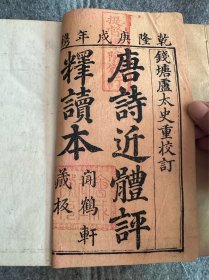 乾隆庚戌年鐫
錢塘盧太史重校訂
唐詩近體評
釋讀本
聞鶴軒
藏板